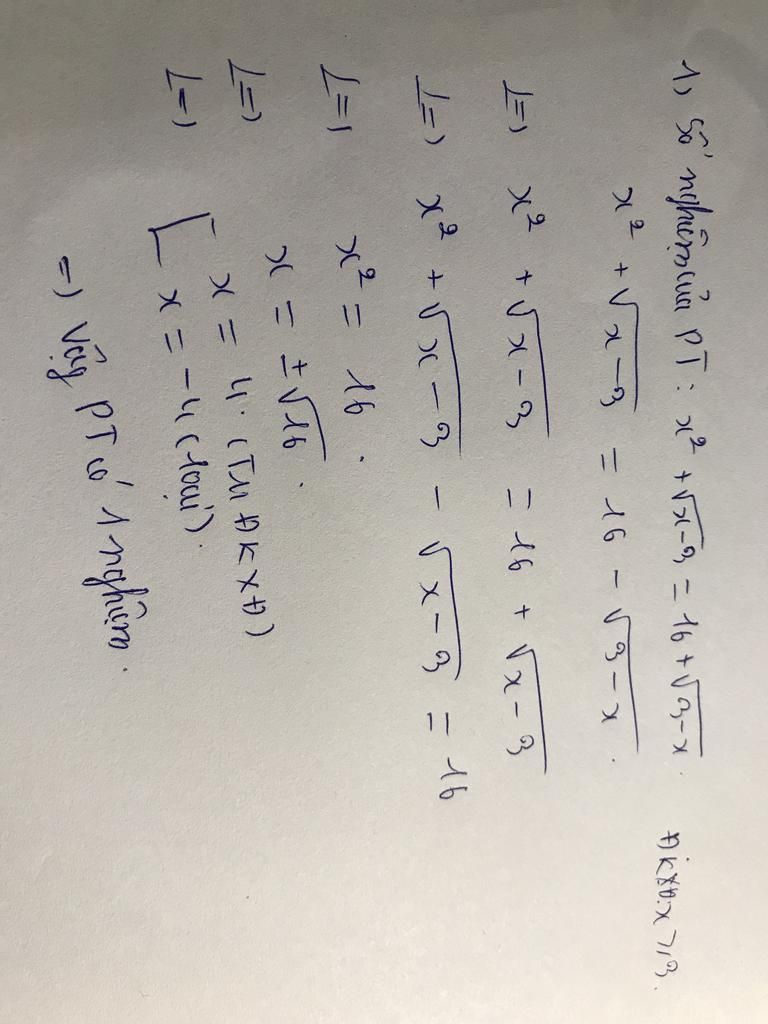 1, Số nghiệm của PT: x² + √x-3 = 16 + √3-x. ĐKXĐ: x ≥ 3.
x² + √x-3 = 16 - √3-x.
<=> x² + √x-3 = 16 + √x-3
<=> x² + √x-3 - √x-3 = 16
<=> x² = 16.
x = ±√16.
<=> [ x = 4. (TM ĐKXĐ)
<=> x = -4 (loại).
=> Vậy PT có 1 nghiệm.